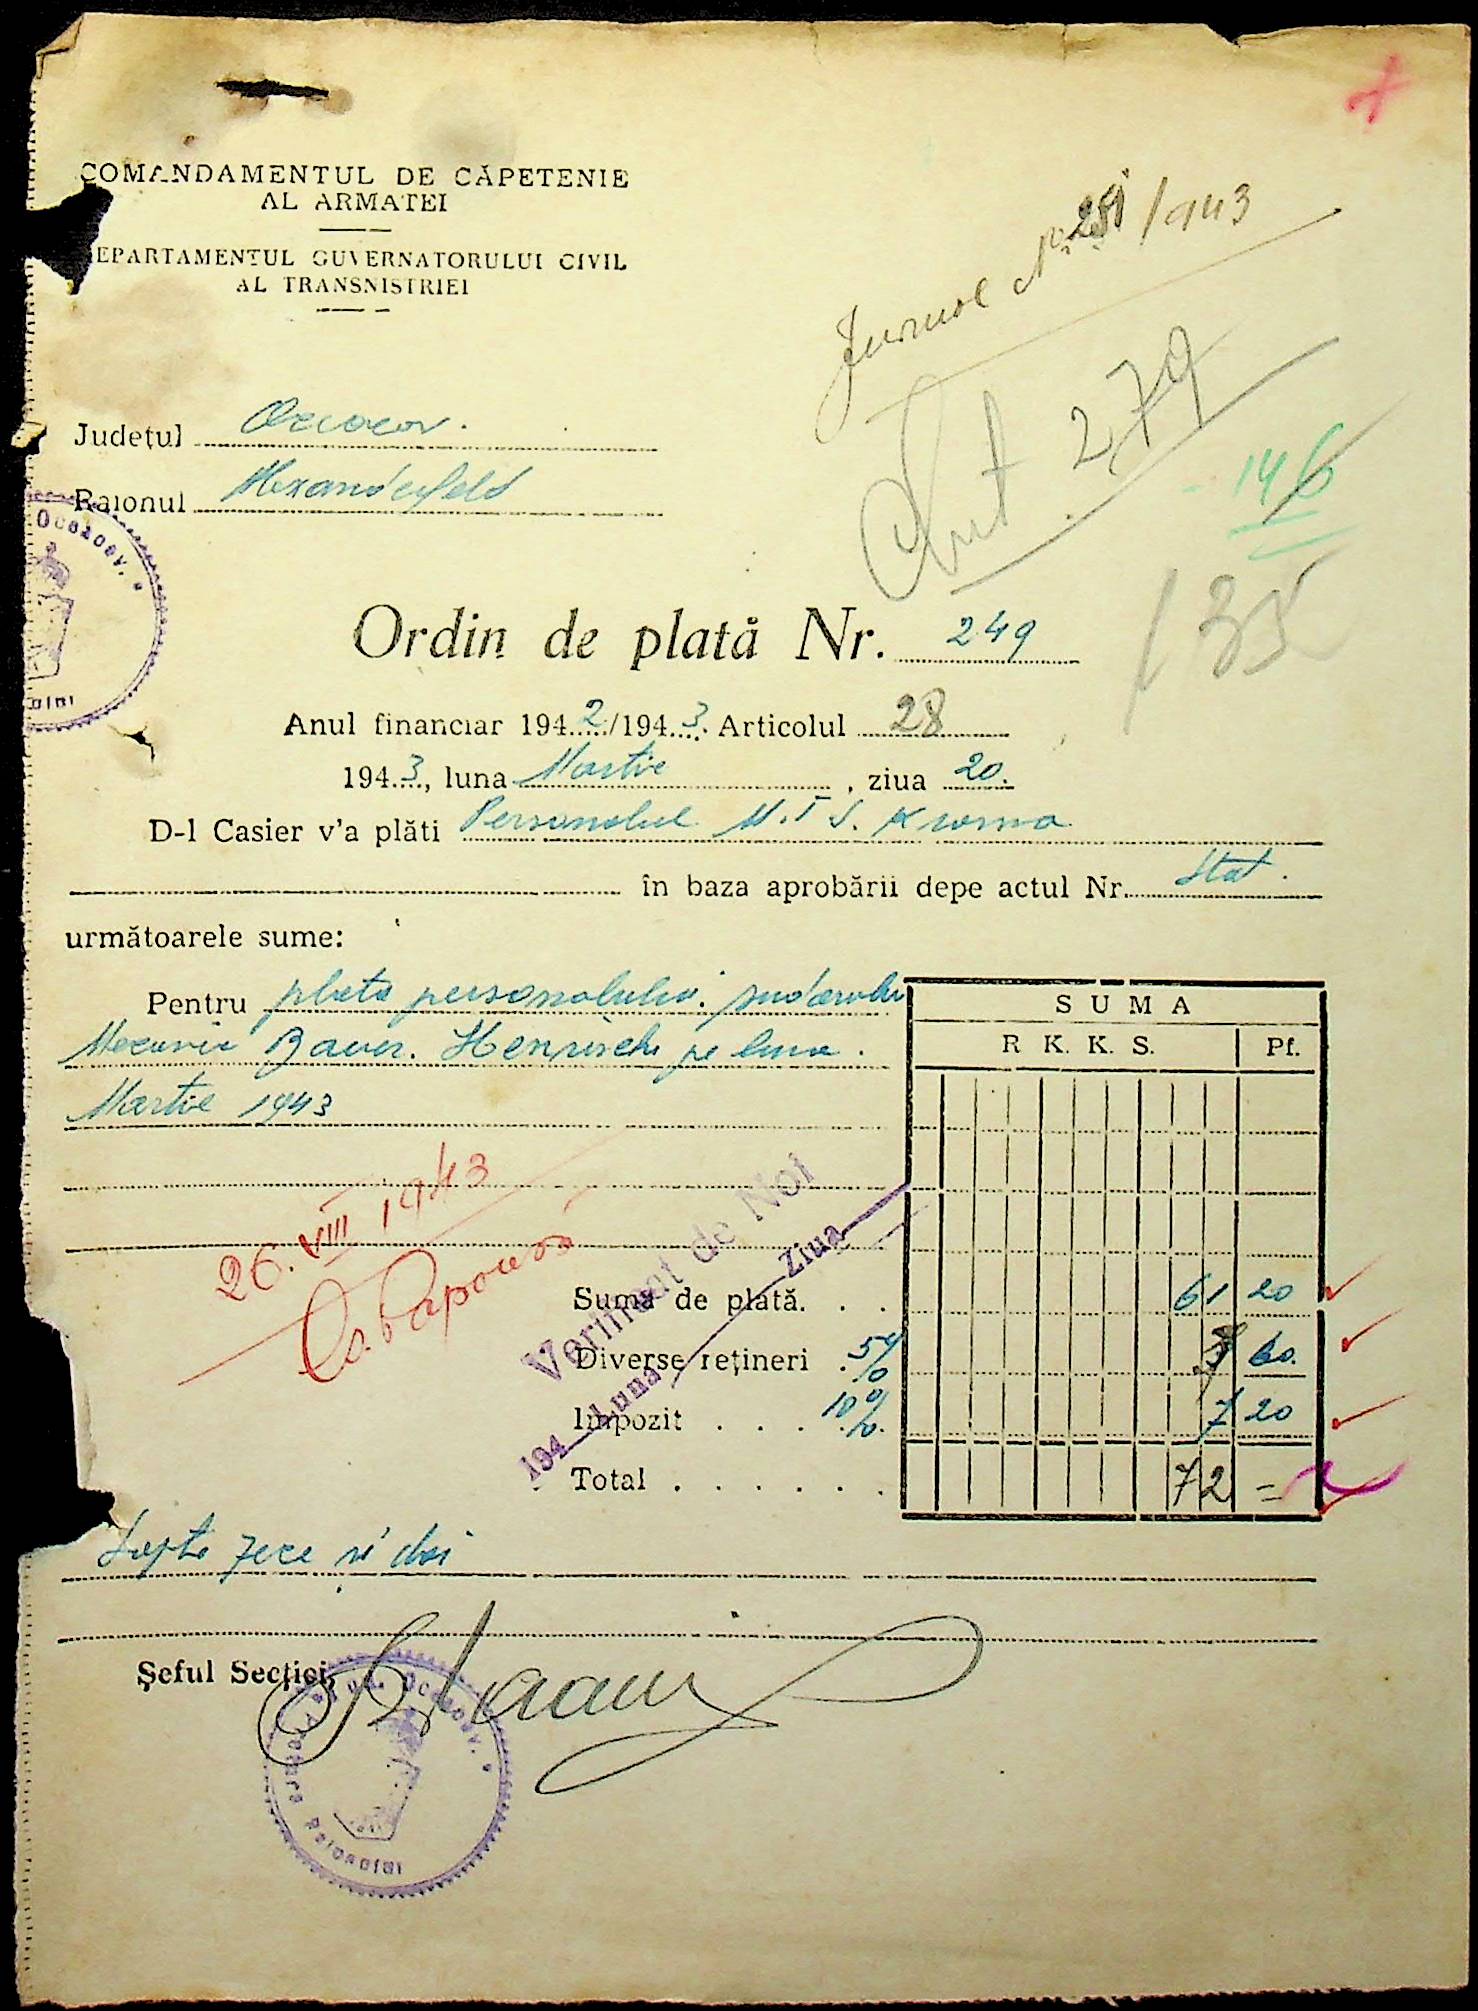 COMANDAMENTUL DE CĂPETENIE
AL ARMATEI
EPARTAMENTUL GUVERNATORULUI CIVIL
AL TRANSNISTRIEI
Jurnal No 251/943
279
146
135
Județul Oceacov.
Raionul Alexanderfeld
Ordin de plată Nr. 249
Anul financiar 1942/1943. Articolul 28
1943, luna Martie, ziua 20.
D-l Casier v'a plăti Personalul M.T.S. Krasna
în baza aprobării depe actul Nr. Stat.
următoarele sume:
Pentru plata personalului
Mecanic Bauer. Henrich pe luna.
Martie 1943
SUMA
R. K. K. S. Pf.
26.VIII 1943
Verificat de Noi
194 Luna Ziua
Suma de plată. . . 61 20
Diverse rețineri . 5% 3 60.
Impozit . . . 10%. 7 20
Total . . . . . . . 72 =
Șapte zece și doi
Șeful Secției,
Jud. Oceacov. * Pretura Raionului